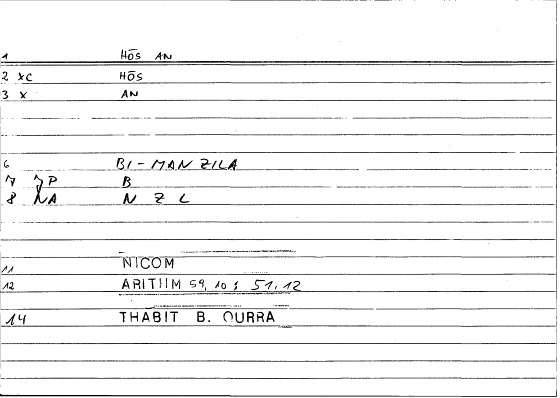 1 HŌS AN
2 XC HŌS
3 X AN
6 BI-MANZILA
7 JP B
8 NA N Z L
11 NICOM
12 ARITHM 59, 10; 51, 12
14 THABIT B. QURRA